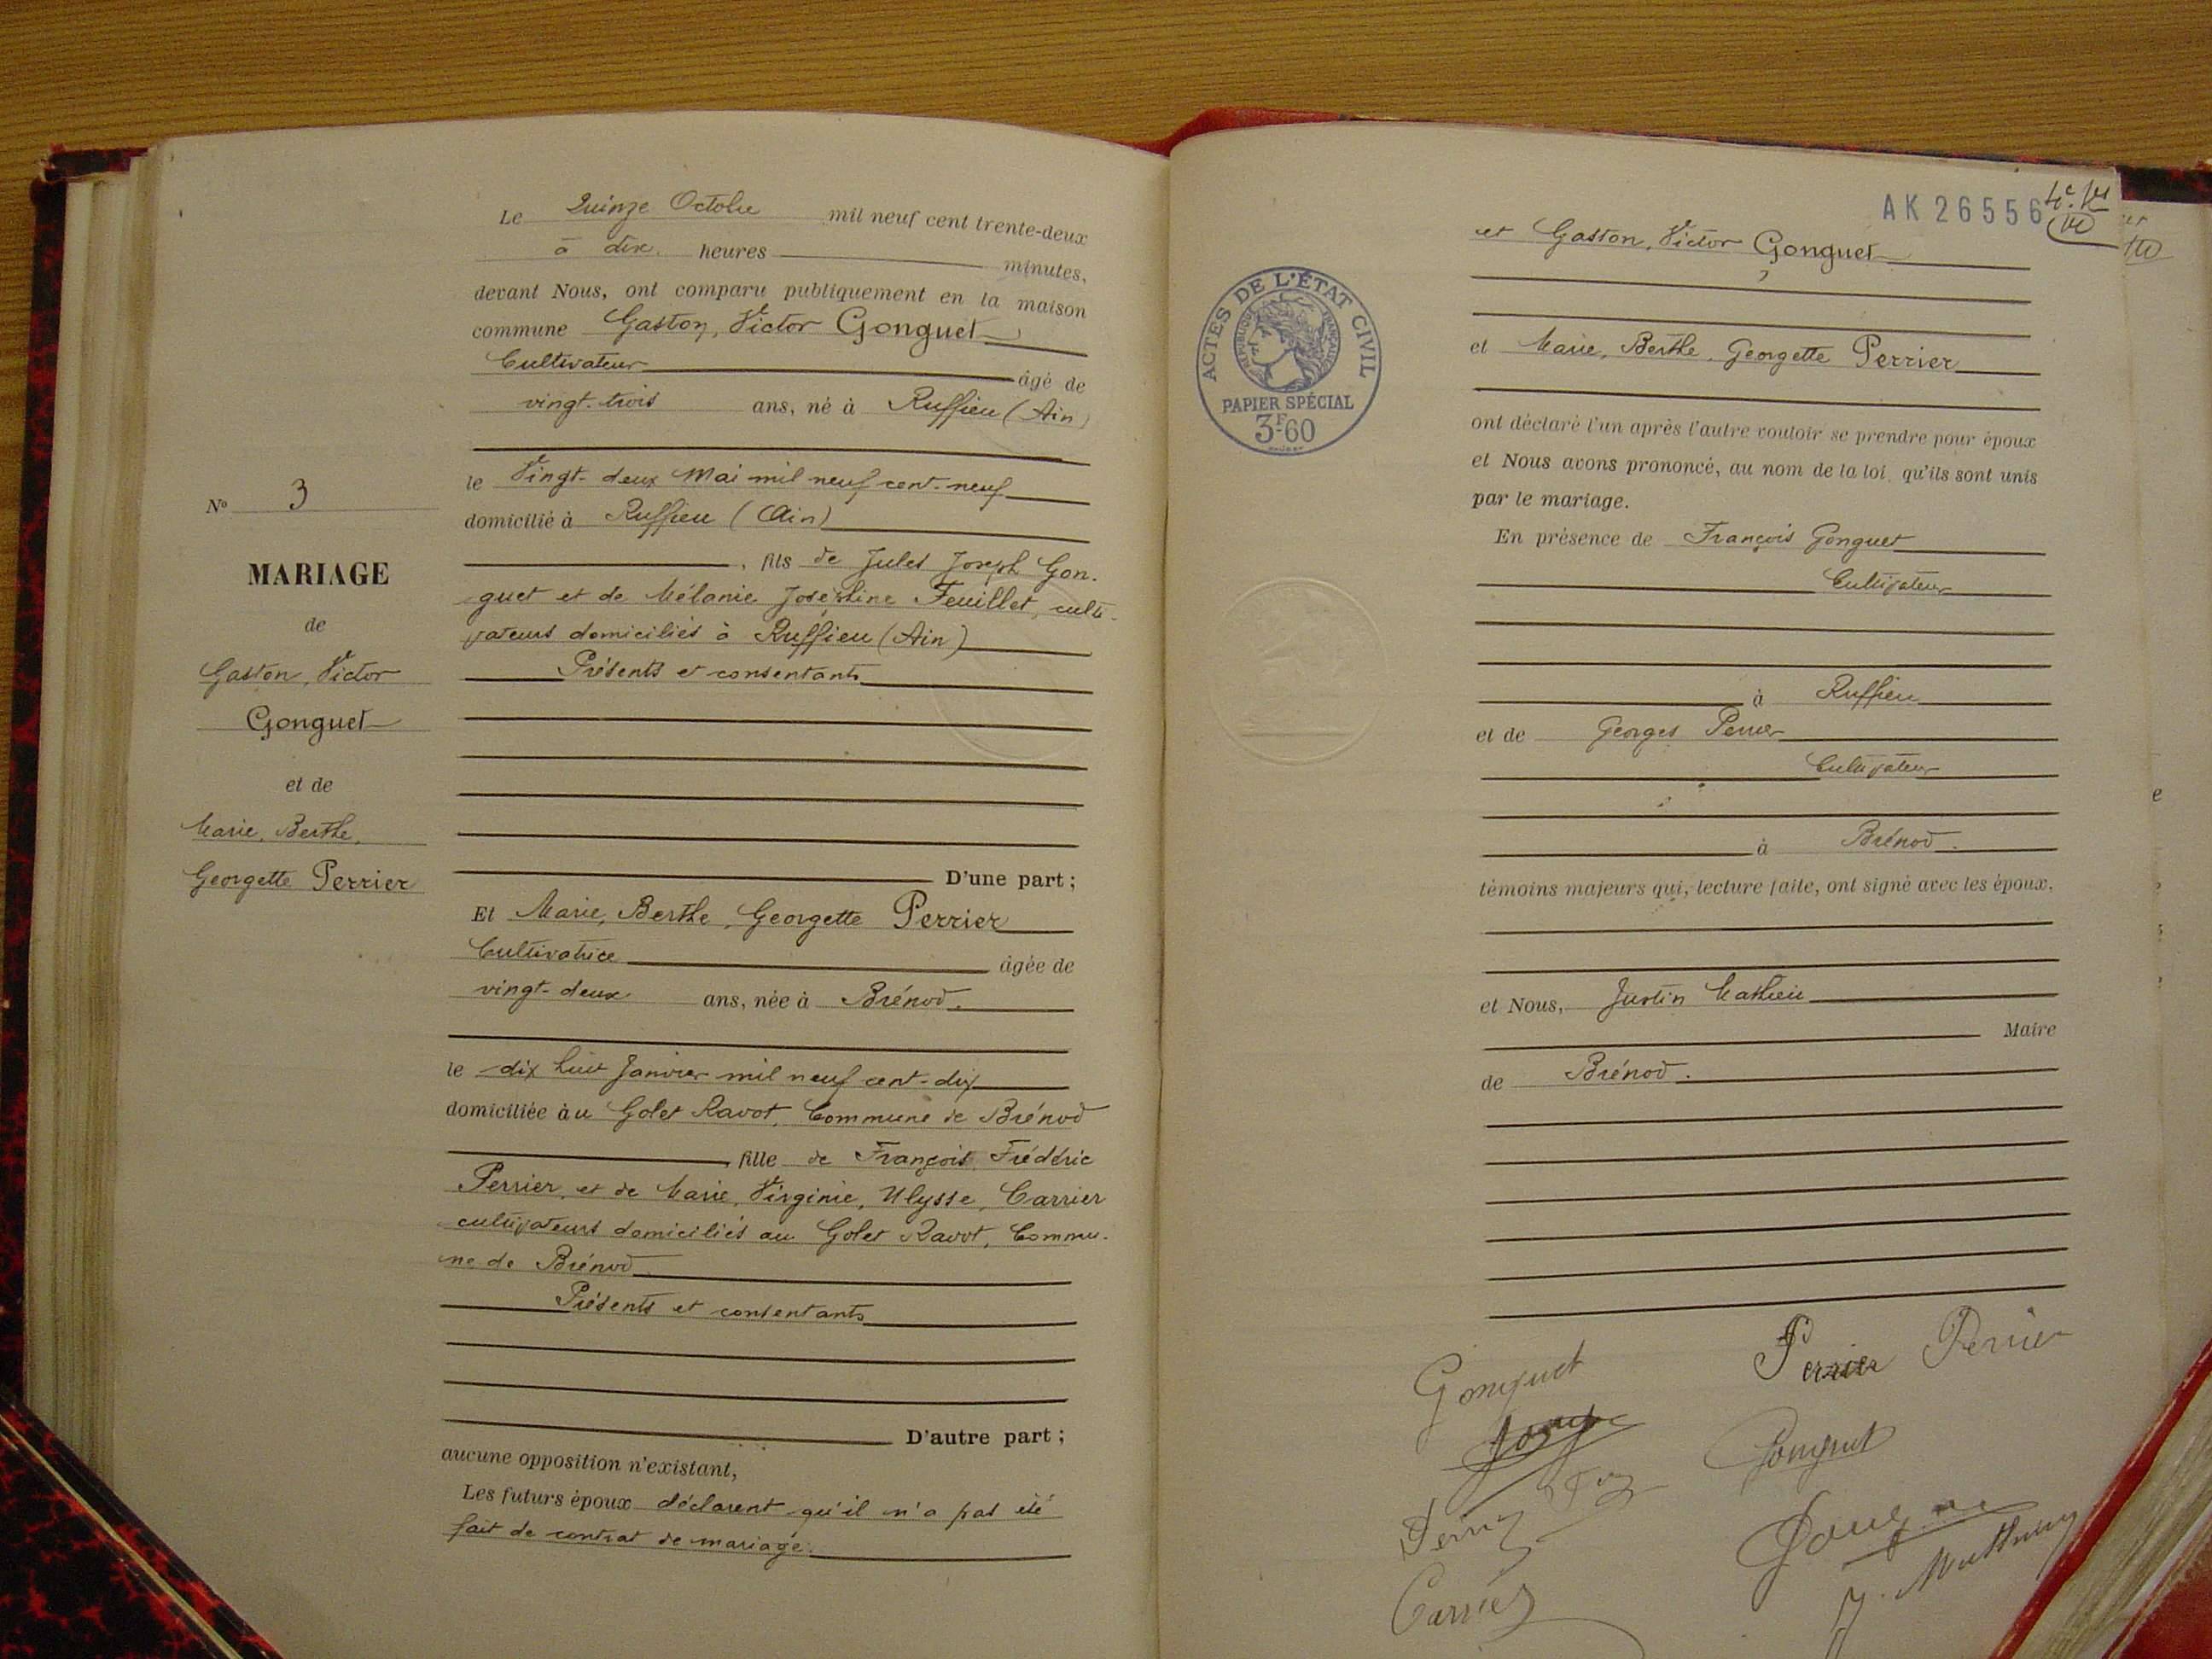 Le Quinze Octobre mil neuf cent trente-deux
à dix heures minutes,
devant Nous, ont comparu publiquement en la maison
commune Gaston, Victor Gonguet
Cultivateur âgé de
vingt-trois ans, né à Ruffieu (Ain)
le Vingt-deux Mai mil neuf cent-neuf
domicilié à Ruffieu (Ain)
, fils de Jules Joseph Gon-
guet et de Mélanie Joséphine Feuillet, culti-
vateurs domiciliés à Ruffieu (Ain)
Présents et consentants
D'une part ;
Et Marie, Berthe, Georgette Perrier
Cultivatrice âgée de
vingt-deux ans, née à Brénod.
le dix huit Janvier mil neuf cent-dix
domiciliée àu Golet Ravot, Commune de Brénod
, fille de François Frédéric
Perrier, et de Marie, Virginie, Ulysse, Carrier
cultivateurs domiciliés au Golet Ravot, Commu-
ne de Brénod
Présents et consentants
D'autre part ;
aucune opposition n'existant,
Les futurs époux déclarent qu'il n'a pas été
fait de contrat de mariage.
N° 3
MARIAGE
de
Gaston, Victor
Gonguet
et de
Marie, Berthe,
Georgette Perrier
AK 26556
ACTES DE L'ÉTAT CIVIL
RÉPUBLIQUE FRANÇAISE
PAPIER SPÉCIAL
3F60
et Gaston, Victor Gonguet
et Marie, Berthe, Georgette Perrier
ont déclaré l'un après l'autre vouloir se prendre pour époux
et Nous avons prononcé, au nom de la loi, qu'ils sont unis
par le mariage.
En présence de François Gonguet
Cultivateur
à Ruffieu
et de Georges Perrier
Cultivateur
à Brénod.
témoins majeurs qui, lecture faite, ont signé avec les époux,
et Nous, Justin Mathieu
Maire
de Brénod.
Gonguet
Perrier Perrier
Gonguet
Carrier